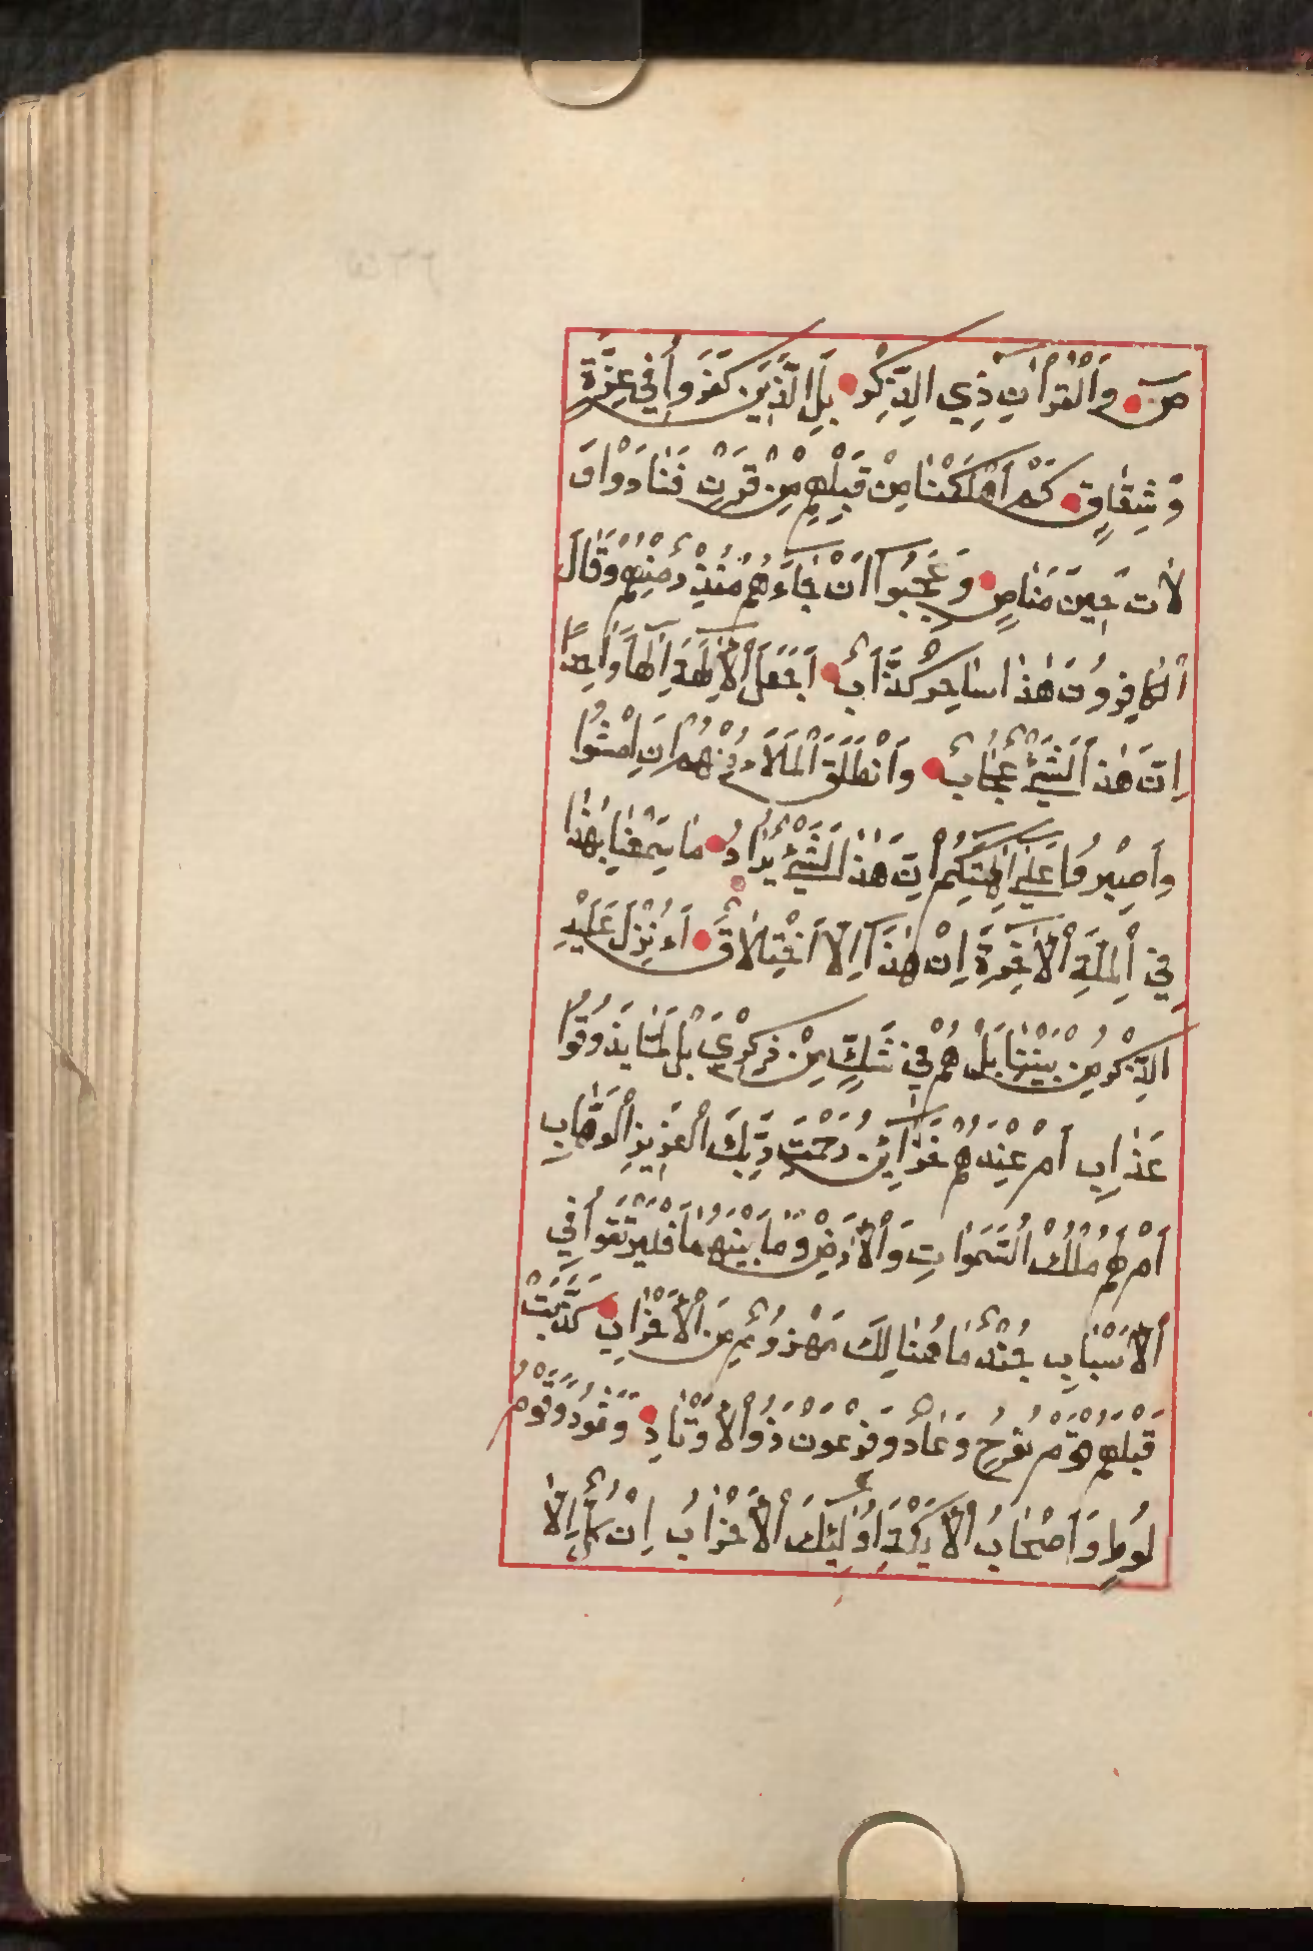 صٓ وَالْقُرْاٰنِ ذِي الذِّكْرِ بَلِ الَّذِينَ كَفَرُوا فِي عِزَّةٍ
وَشِقَاقٍ كَمْ اَهْلَكْنَا مِنْ قَبْلِهِمْ مِنْ قَرْنٍ فَنَادَوْا وَ
لَاتَ حِينَ مَنَاصٍ وَعَجِبُوا اَنْ جَاءَهُمْ مُنْذِرٌ مِنْهُمْ وَقَالَ
الْكَافِرُونَ هٰذَا سَاحِرٌ كَذَّابٌ اَجَعَلَ الْاٰلِهَةَ اِلٰهًا وَاحِدًا
اِنَّ هٰذَا لَشَيْءٌ عُجَابٌ وَانْطَلَقَ الْمَلَاُ مِنْهُمْ اَنِ امْشُوا
وَاصْبِرُوا عَلٰى اٰلِهَتِكُمْ اِنَّ هٰذَا لَشَيْءٌ يُرَادُ مَا سَمِعْنَا بِهٰذَا
فِي الْمِلَّةِ الْاٰخِرَةِ اِنْ هٰذَا اِلَّا اخْتِلَاقٌ اَءُنْزِلَ عَلَيْهِ
الذِّكْرُ مِنْ بَيْنِنَا بَلْ هُمْ فِي شَكٍّ مِنْ ذِكْرِي بَلْ لَمَّا يَذُوقُوا
عَذَابِ اَمْ عِنْدَهُمْ خَزَائِنُ رَحْمَةِ رَبِّكَ الْعَزِيزِ الْوَهَّابِ
اَمْ لَهُمْ مُلْكُ السَّمٰوَاتِ وَالْاَرْضِ وَمَا بَيْنَهُمَا فَلْيَرْتَقُوا فِي
الْاَسْبَابِ جُنْدٌ مَا هُنَالِكَ مَهْزُومٌ مِنَ الْاَحْزَابِ كَذَّبَتْ
قَبْلَهُمْ قَوْمُ نُوحٍ وَعَادٌ وَفِرْعَوْنُ ذُو الْاَوْتَادِ وَثَمُودُ وَقَوْمُ
لُوطٍ وَاَصْحَابُ الْاَيْكَةِ اُولٰئِكَ الْاَحْزَابُ اِنْ كُلٌّ اِلَّا